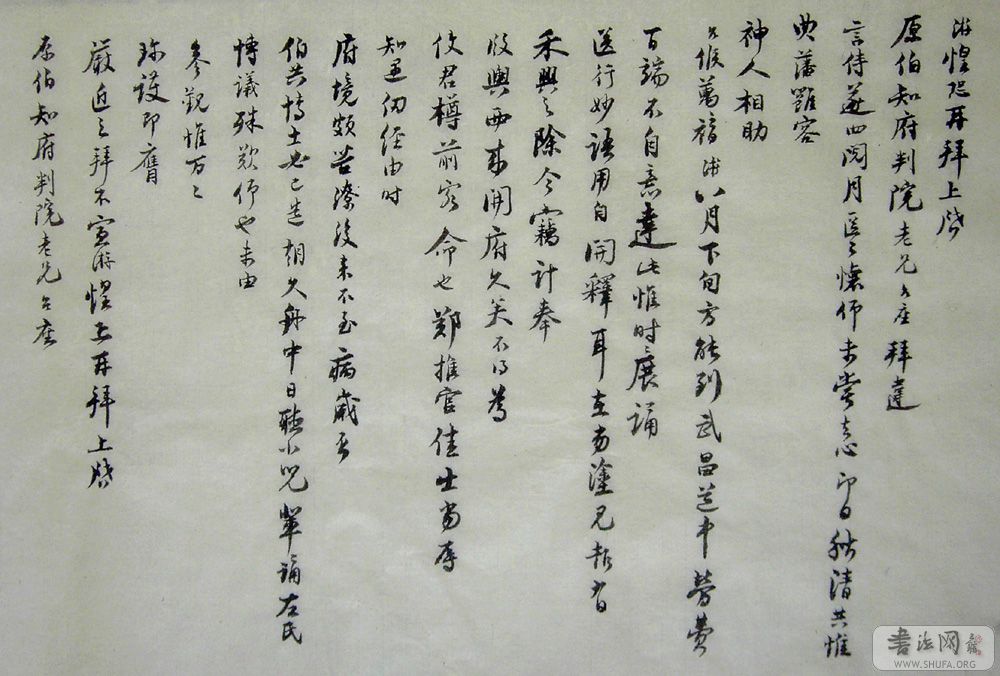 游惶恐再拜上啓
原伯知府判院老兄台座拜違
言侍遂四閱月區區懷仰未嘗去心即日秋清共惟
典藩雍容
神人相助
台候萬福游八月下旬方能到武昌道中勞費
百端不自意達此惟時時展誦
送行妙語用自開釋耳在當塗見報有
禾興之除今竊計奉
版輿西來開府久矣不得為
使君樽前客命也鄭推官佳士當辱
知遇向經由時
府境頗苦潦後來不至病歲否
伯共博士必已造朝久舟中日聽小兒輩誦左氏
博議殊歎仰也未由
參覲惟万万
珍護即膺
嚴近之拜不宣游惶恐再拜上啓
原伯知府判院老兄台座
書法网
WWW.SHUFA.ORG